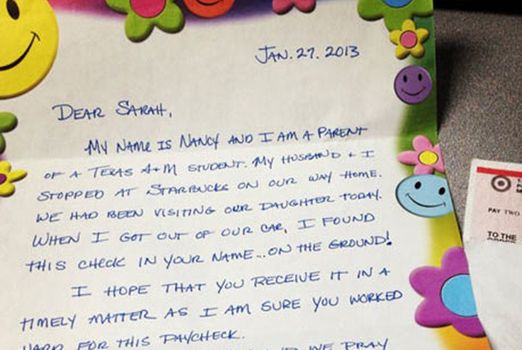 JAN. 27. 2013
DEAR SARAH,
MY NAME IS NANCY AND I AM A PARENT
OF A TEXAS A+M STUDENT. MY HUSBAND + I
STOPPED AT STARBUCKS ON OUR WAY HOME.
WE HAD BEEN VISITING OUR DAUGHTER TODAY.
WHEN I GOT OUT OF OUR CAR, I FOUND
THIS CHECK IN YOUR NAME...ON THE GROUND!
I HOPE THAT YOU RECEIVE IT IN A
TIMELY MATTER AS I AM SURE YOU WORKED
HARD FOR THIS PAYCHECK.
WE PRAY
PAY TWO
TO THE